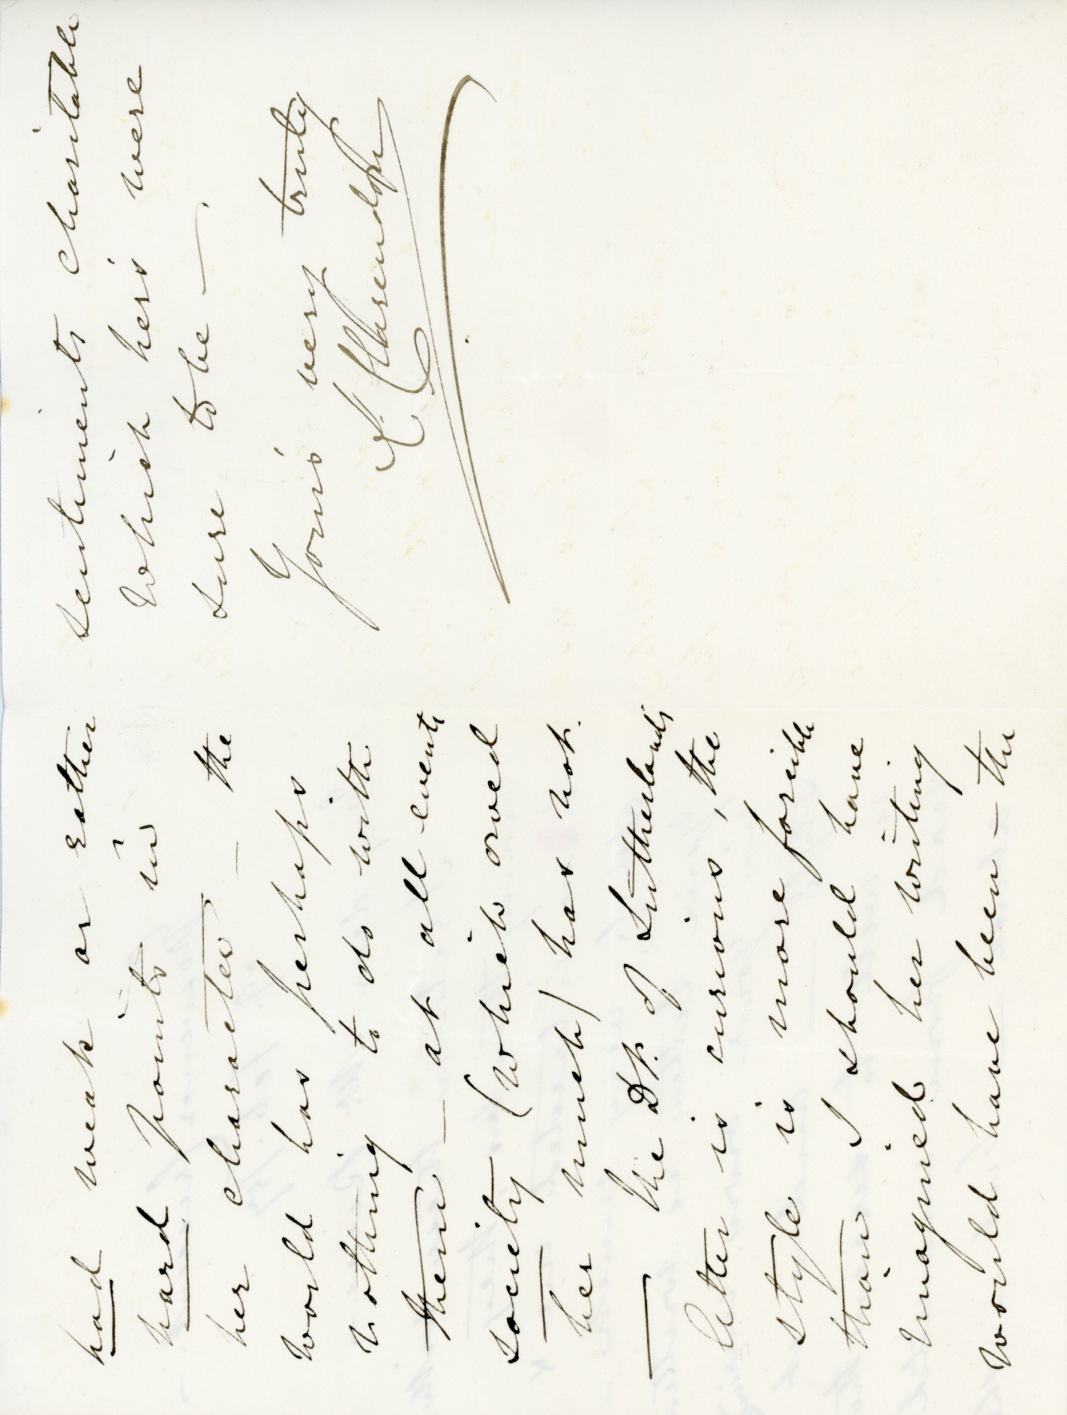 had weak or rather
hard points in
her character — the
world has perhaps
nothing to do with
them — at all events
society (which owed
her much) has not.
— The Ds. of Sutherland's
letter is curious, the
style is more forcible
than I should have
imagined her writing
would have been — the
sentiments charitable
which her's were
sure to be —
Your's very truly
K Clarendon